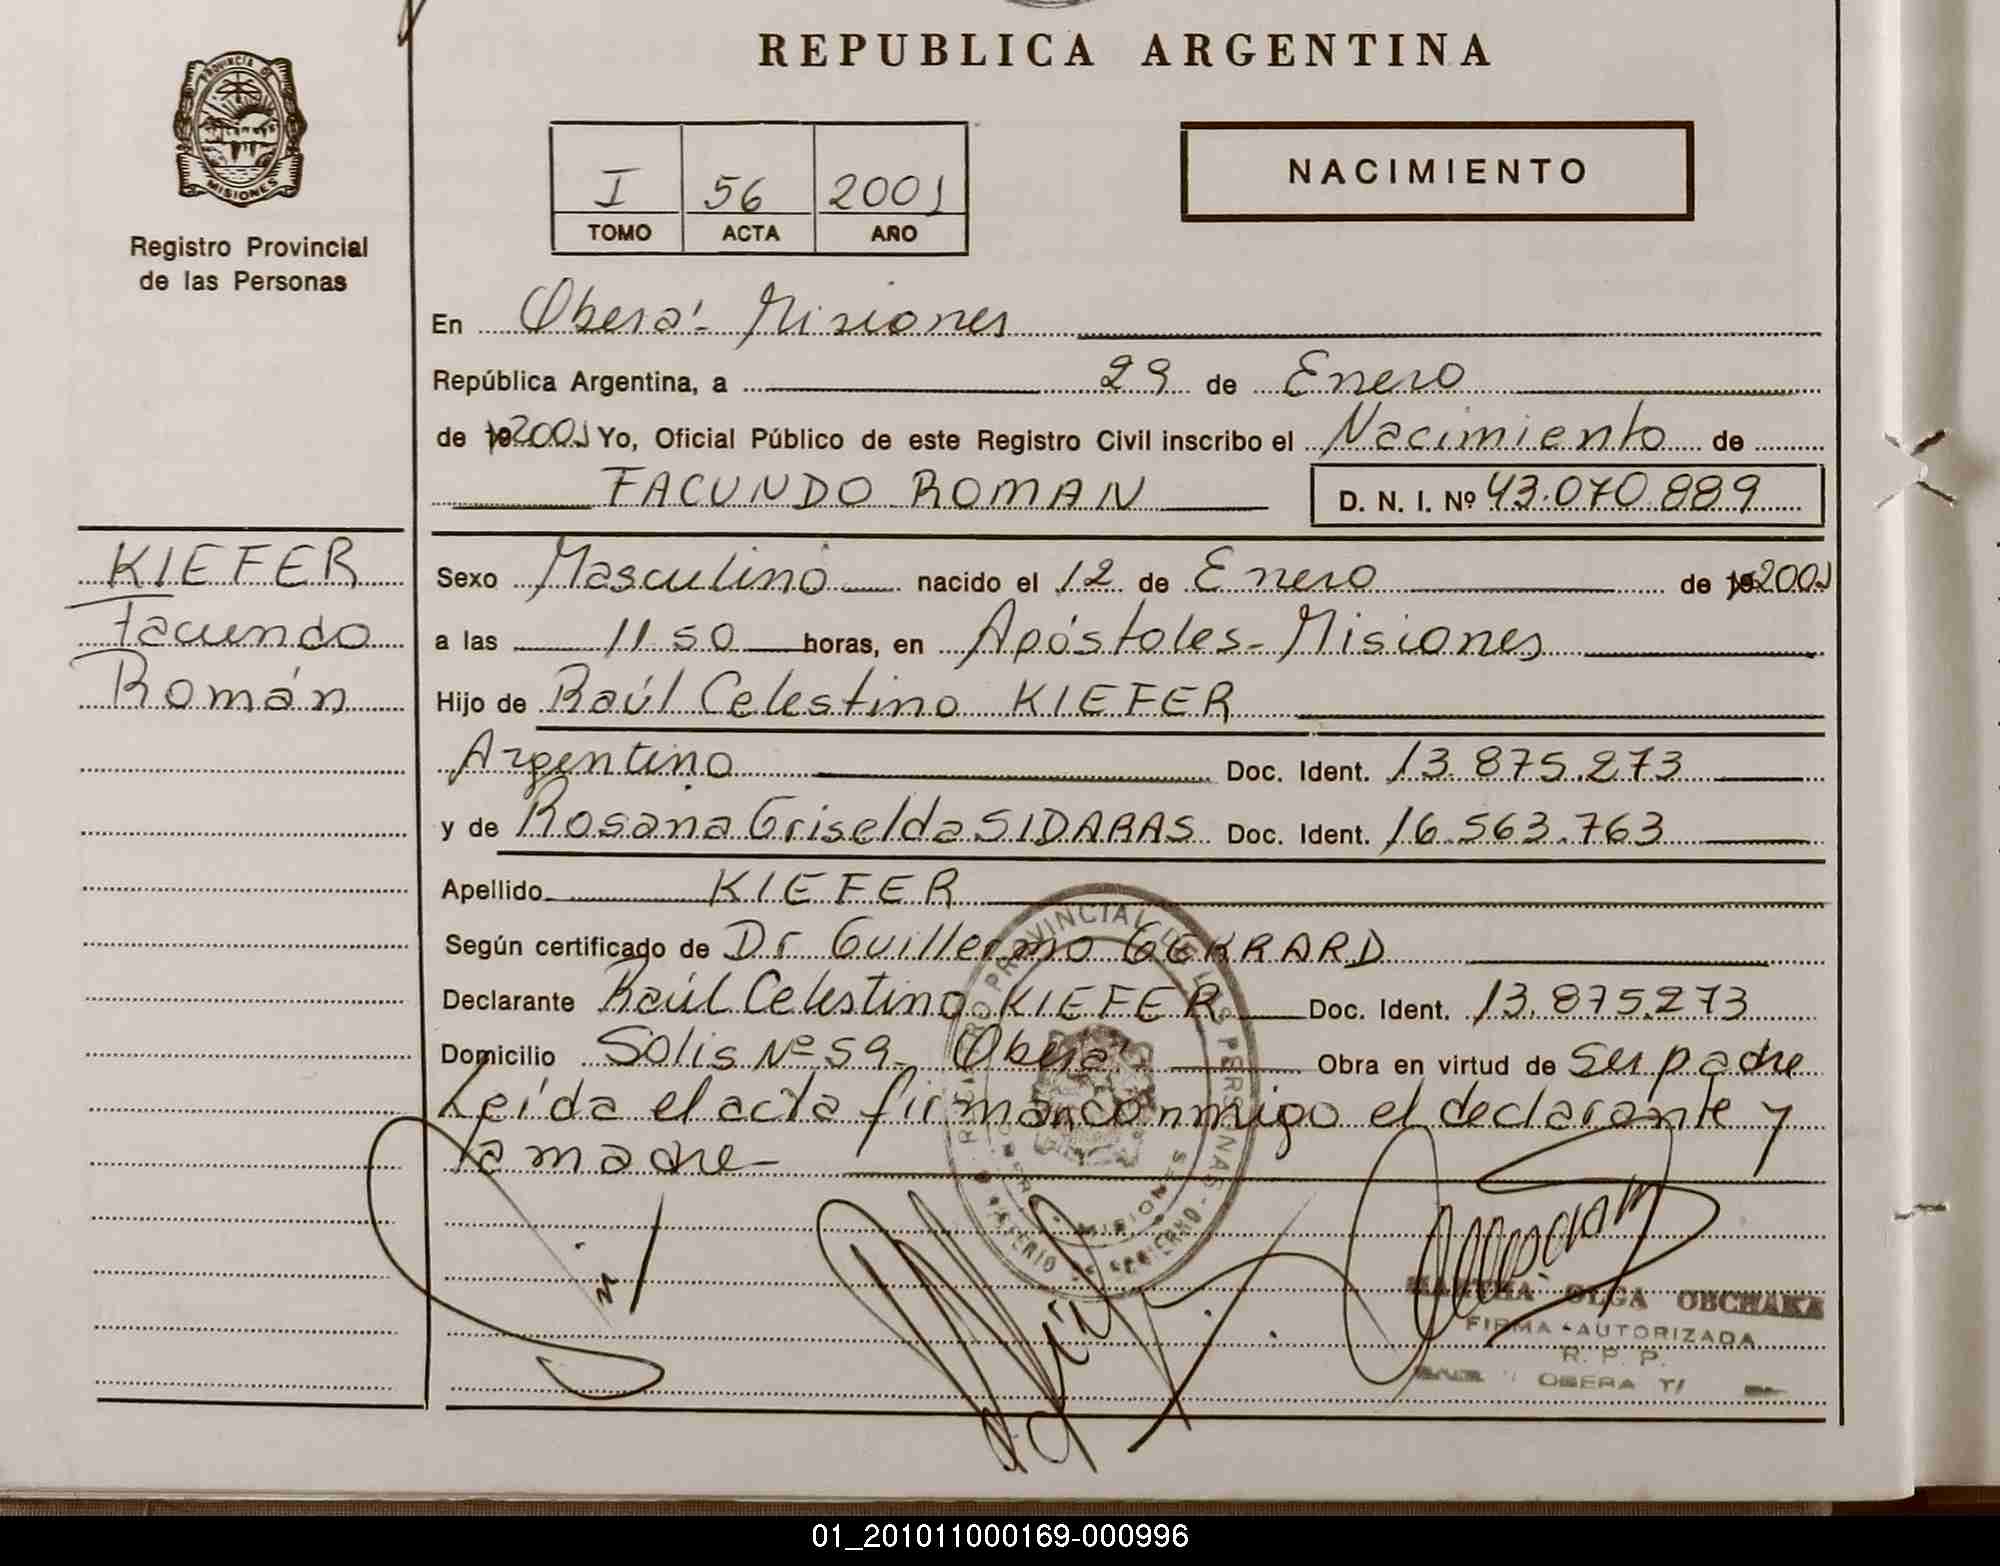 REPUBLICA ARGENTINA
PROVINCIA DE
MISIONES
Registro Provincial
de las Personas
I 56 2001
TOMO ACTA AÑO
NACIMIENTO
En Oberá - Misiones
República Argentina, a 29 de Enero
de 19 2001 Yo, Oficial Público de este Registro Civil inscribo el Nacimiento de
FACUNDO ROMAN D. N. I. Nº 43.070.889
KIEFER
Facundo
Román
Sexo Masculino nacido el 12 de Enero de 19 2001
a las 11.50 horas, en Apóstoles - Misiones
Hijo de Raúl Celestino KIEFER
Argentino Doc. Ident. 13.875.273
y de Rosana Griselda SIDARAS Doc. Ident. 16.563.763
Apellido KIEFER
Según certificado de Dr Guillermo GERRARD
Declarante Raúl Celestino KIEFER Doc. Ident. 13.875.273
Domicilio Solis Nº 59 - Oberá Obra en virtud de ser padre
Leída el acta firman conmigo el declarante y
la madre -
REGISTRO PROVINCIAL DE LAS PERSONAS
MISIONES
MARTHA OLGA OBCHAKA
FIRMA AUTORIZADA
R. P. P.
OBERA
01_201011000169-000996